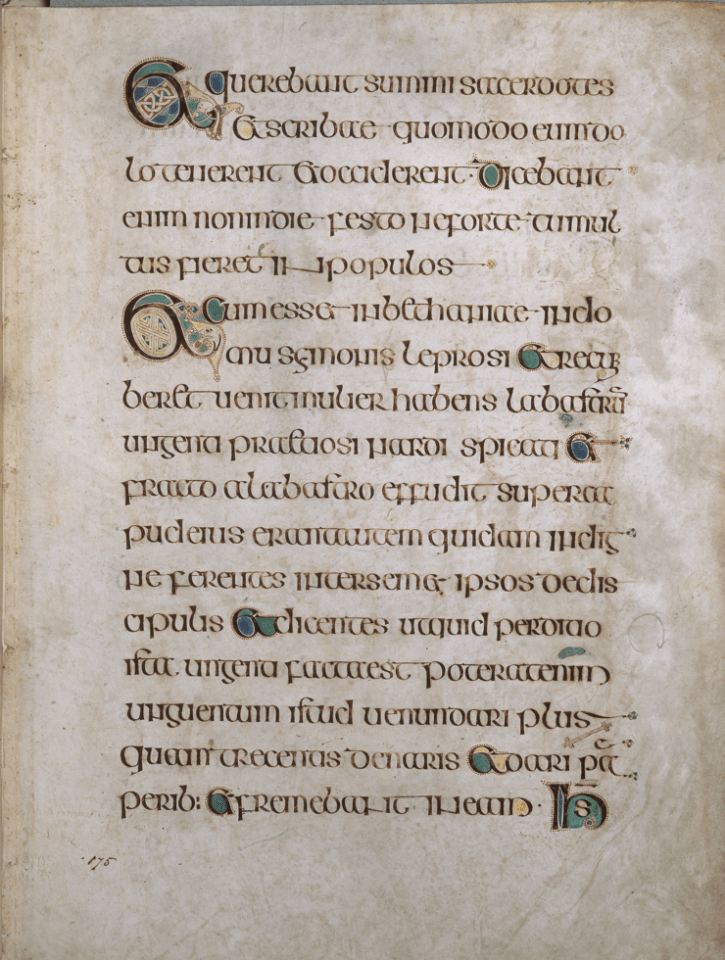 Et querebant summi sacerdotes
et scribae quomodo eum do
lo tenerent et occiderent · Dicebant
enim non in die festo ne forte tumul
tus fieret in populos
Et cum esset in bethaniae in do
mu simonis leprosi et recu
beret uenit mulier habens labastrū
ungenti praetiosi nardi spicati et
fracto alabastro effudit super ca
put eius erant autem quidam indig
ne ferentes inter semet ipsos de dis
cipulis et dicentes ut quid perditio
ista ungenti facta est poterat enim
unguentum istud uenundari plus
quam trecentis denaris et dari pau
perib: et fremebant in eam · ihs
175